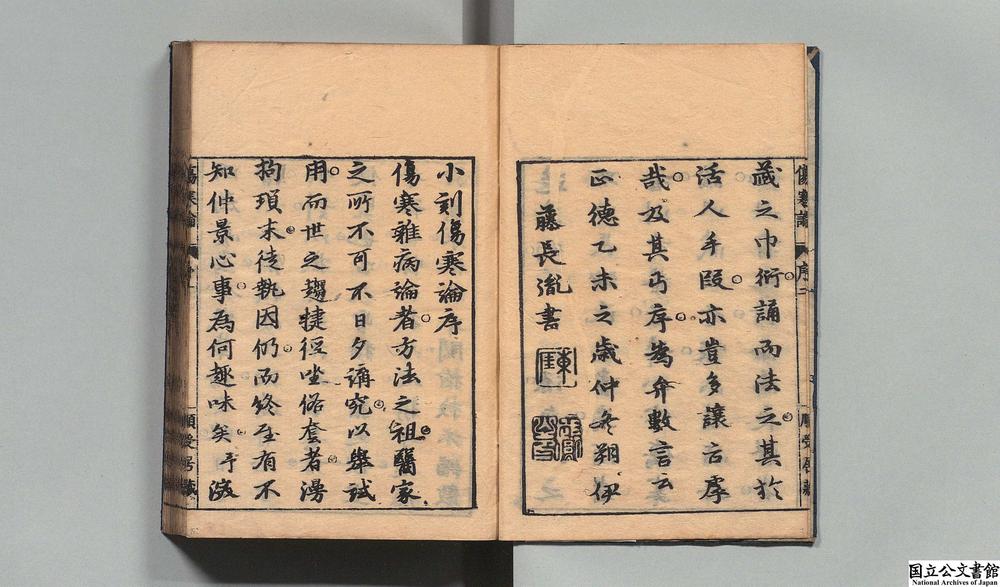 藏之巾衍誦而法之其於
活人手段亦豈多讓古虖
哉及其丐序為弁數言云
正德乙未之歳仲冬朔伊
藤長胤書
傷寒論 序二
小刻傷寒論序
傷寒雜病論者方法之祖醫家
之所不可不日夕講究以舉試
用而世之趨捷徑坐俗套者漫
拘瑣末徒執因仍而終至有不
知仲景心事為何趣味矣予
傷寒論
国立公文書館
National Archives of Japan